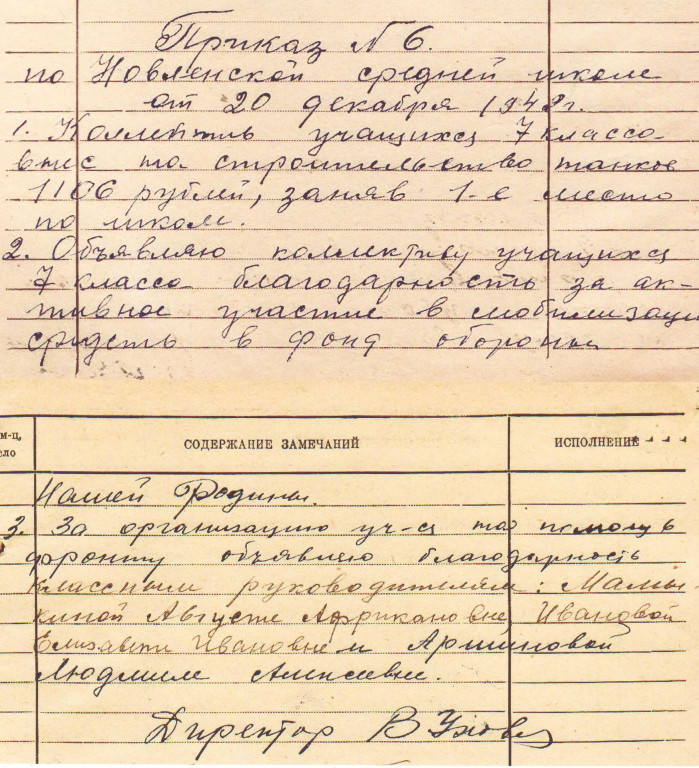 Приказ N 6.
по Новленской средней школе
от 20 декабря 1942 г.
1. Коллектив учащихся 7 класса
внес на строительство танков
1106 рублей, заняв 1-е место
по школе.
2. Объявляю коллективу учащихся
7 класса благодарность за ак-
тивное участие в мобилизации
средств в фонд обороны
м-ц,
СОДЕРЖАНИЕ ЗАМЕЧАНИЙ
ИСПОЛНЕНИЕ
Нашей Родины.
3. За организацию уч-ся на помощь
фронту объявляю благодарность
классным руководителям: Малы-
киной Августе Африкановне, Ивановой
Елизавете Ивановне и Аршиновой
Людмиле Алексеевне.
Директор В